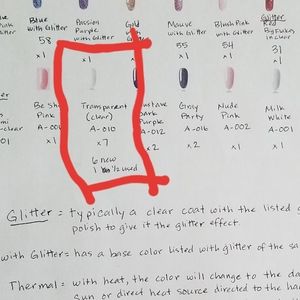 Blue Passion Gold Mauve Blush Pink Glitter
with Glitter Purple with Glitter with Glitter Red
with Glitter Big Flakes
58 55 54 in Clear
31
x1 x1 x1 x1 x1
Be Transparent Gray Nude Milk
Pink (clear) Purple Party Pink White
A-010 A-012 A-016 A-002 A-001
x1 x7 x2 x2 x1 x1
6 new
1 ½ used
Glitter = typically a clear coat with the listed
polish to give it the glitter effect.
with Glitter = has a base color listed with glitter of the
Thermal = with heat, the color will change to the
sun or direct heat source directed to the